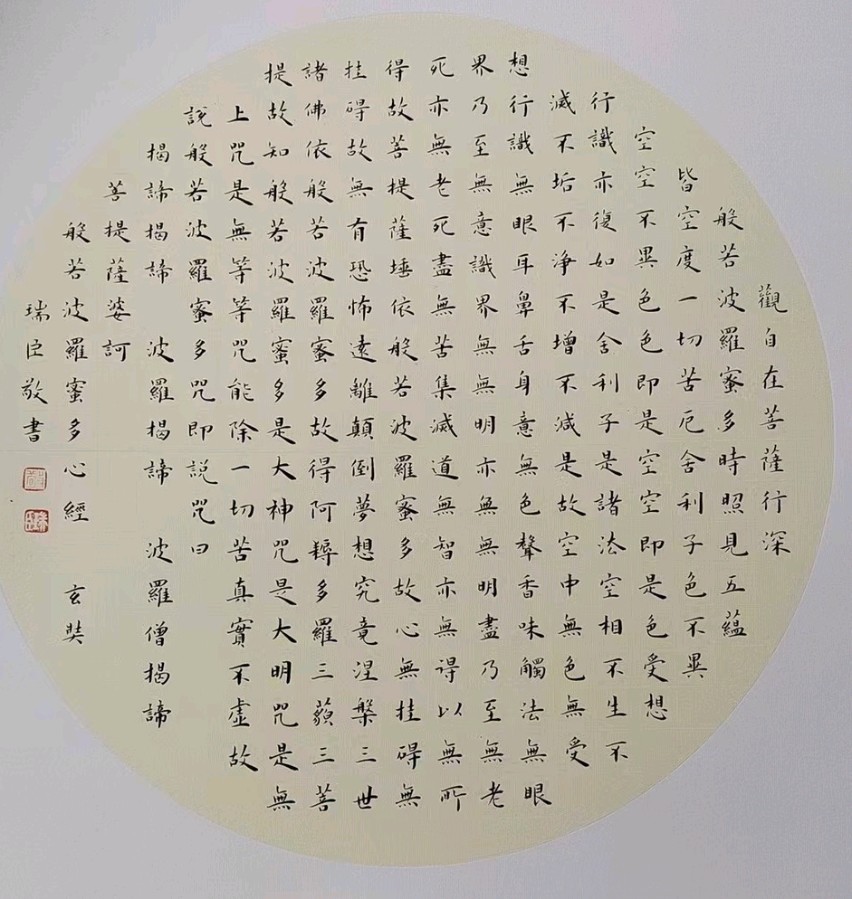 觀自在菩薩行深
般若波羅蜜多時照見五蘊
皆空度一切苦厄舍利子色不異
空空不異色色即是空空即是色受想
行識亦復如是舍利子是諸法空相不生不
滅不垢不淨不增不減是故空中無色無受
想行識無眼耳鼻舌身意無色聲香味觸法無眼
界乃至無意識界無無明亦無無明盡乃至無老
死亦無老死盡無苦集滅道無智亦無得以無所
得故菩提薩埵依般若波羅蜜多故心無挂碍無
挂碍故無有恐怖遠離顛倒夢想究竟涅槃三世
諸佛依般若波羅蜜多故得阿耨多羅三藐三菩
提故知般若波羅蜜多是大神咒是大明咒是無
上咒是無等等咒能除一切苦真實不虛故
說般若波羅蜜多咒即說咒曰
揭諦揭諦 波羅揭諦 波羅僧揭諦
菩提薩婆訶
般若波羅蜜多心經 玄奘
瑞臣敬書